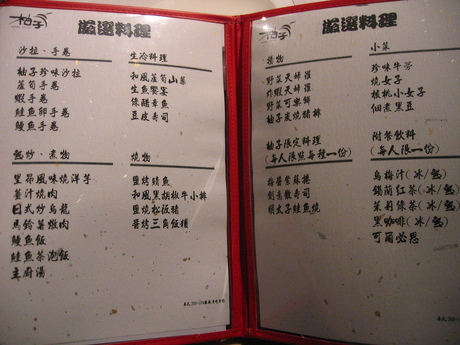 柚子
嚴選料理
沙拉．手卷
柚子珍味沙拉
蘆筍手卷
蝦手卷
鮭魚卵手卷
鰻魚手卷
生冷料理
和風蘆筍山菜
生魚饗宴
條醋章魚
豆皮壽司
熱炒．煮物
里昂風味燒洋芋
薑汁燒肉
日式炒烏龍
馬鈴薯燉肉
鰻魚飯
鮭魚茶泡飯
主廚湯
燒物
鹽烤鯖魚
和風黑胡椒牛小排
鹽燒松阪豬
醬烤三角飯糰
柚子
嚴選料理
揚物
野菜天婦羅
炸蝦天婦羅
野菜可樂餅
柚子炭燒豬排
柚子限定料理
(每人限點每種一份)
明太子鮭魚燒
小菜
珍味牛蒡
燒女子
核桃小女子
佃煮黑豆
附餐飲料
(每人限一份)
烏梅汁(冰/熱)
錫蘭紅茶(冰/熱)
茉莉綠茶(冰/熱)
黑咖啡(冰/熱)
可爾必思